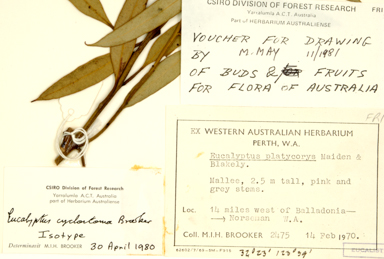 CSIRO DIVISION OF FOREST RESEARCH
Yarralumla A.C.T. Australia
Part of HERBARIUM AUSTRALIENSE
VOUCHER FOR DRAWING
BY M. MAY 11/1981
OF BUDS & FRUITS
FOR FLORA OF AUSTRALIA
EX WESTERN AUSTRALIAN HERBARIUM
PERTH, W.A.
Eucalyptus platycorys Maiden &
Blakely.
Mallee, 2.5 m tall, pink and
grey stems.
Loc. 14 miles west of Balladonia—
—> Norseman W.A.
Coll. M.I.H. BROOKER 2475 14 Feb 1970.
CSIRO Division of Forest Research
Yarralumla A.C.T. Australia
part of Herbarium Australiense
Eucalyptus cyclostoma Brooker
Isotype
Determinavit M.I.H. BROOKER 30 April 1980